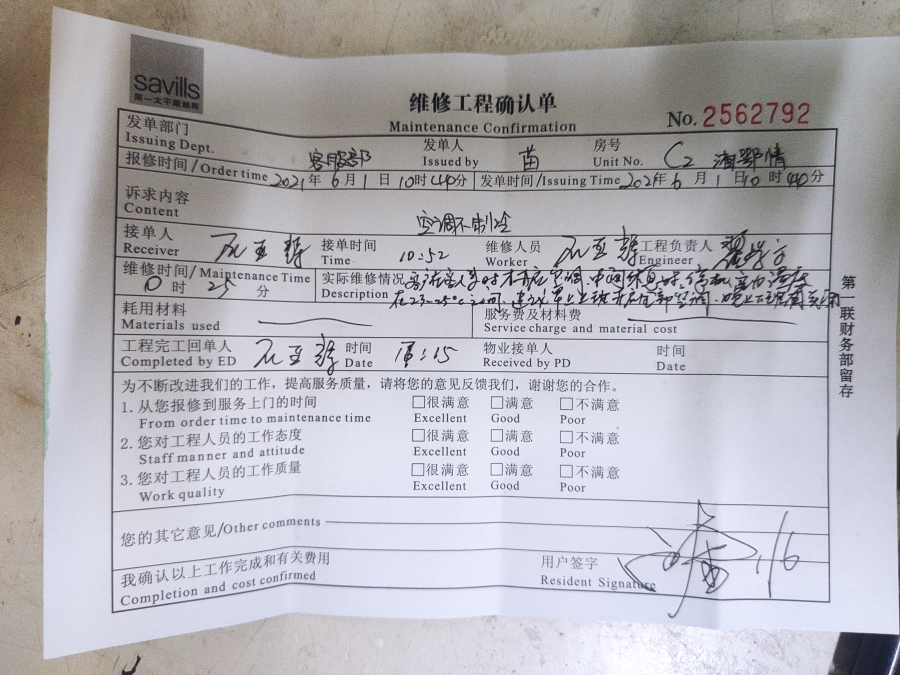 savills
第一太平戴维斯
维修工程确认单
Maintenance Confirmation
No. 2562792
发单部门 客服部 发单人 苗 房号 C2 湘鄂情
Issuing Dept. Issued by Unit No.
报修时间/Order time 2021年6月1日10时40分 发单时间/Issuing Time 2021年6月1日10时40分
诉求内容
Content
空调不制冷
接单人 接单时间 10:52 维修人员 工程负责人
Receiver Time Worker Engineer
维修时间/Maintenance Time 实际维修情况
0时25分 Description
在23-25°C之间
耗用材料 服务费及材料费
Materials used Service charge and material cost
工程完工回单人 时间 物业接单人 时间
Completed by ED Date :15 Received by PD Date
为不断改进我们的工作，提高服务质量，请将您的意见反馈我们，谢谢您的合作。
1. 从您报修到服务上门的时间 □很满意 □满意 □不满意
From order time to maintenance time Excellent Good Poor
2. 您对工程人员的工作态度 □很满意 □满意 □不满意
Staff manner and attitude Excellent Good Poor
3. 您对工程人员的工作质量 □很满意 □满意 □不满意
Work quality Excellent Good Poor
您的其它意见/Other comments
我确认以上工作完成和有关费用 用户签字
Completion and cost confirmed Resident Signature
第一联财务部留存